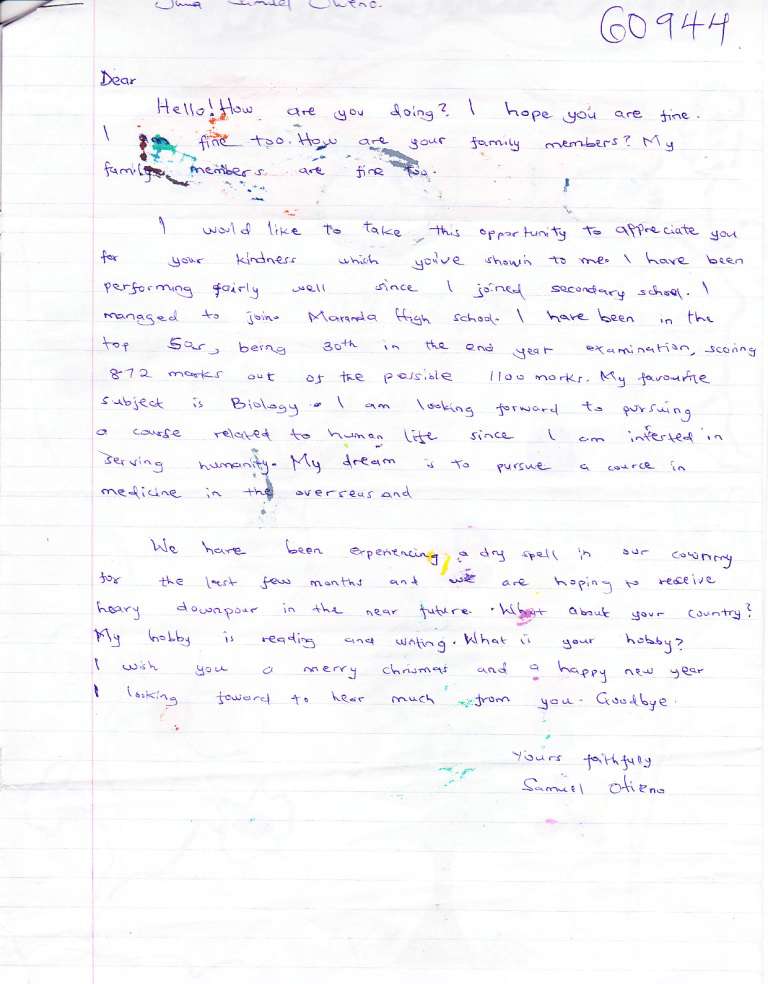 Samuel Otieno.
60944
Dear
Hello! How are you doing? I hope you are fine.
I am fine too. How are your family members? My
family members are fine too.
I would like to take this opportunity to appreciate you
for your kindness which you've shown to me. I have been
performing fairly well since I joined secondary school. I
managed to join Maranda High school. I have been in the
top 50s, being 30th in the end year examination, scoring
872 marks out of the possible 1100 marks. My favourite
subject is Biology. I am looking forward to pursuing
a course related to human life since I am intersted in
serving humanity. My dream is to pursue a cource in
medicine in the overseas and
We have been experiencing a dry spell in our country
for the last few months and we are hoping to receive
heavy downpour in the near future. What about your country?
My hobby is reading and writing. What is your hobby?
I wish you a merry chrismas and a happy new year
I looking foward to hear much from you. Goodbye.
Yours faithfully
Samuel Otieno